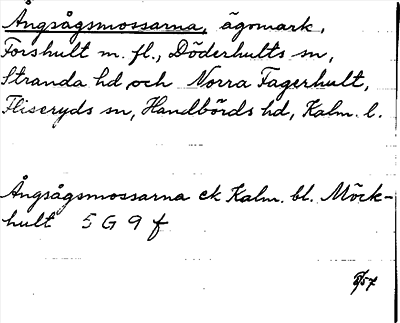 Ångsågsmossarna, ägomark,
Forshult m. fl., Döderhults sn,
Stranda hd och Norra Fagerhult,
Fliseryds sn, Handbörds hd, Kalm. l.
Ångsågsmossarna ek Kalm. bl. Möck-
hult 5 G 9 f